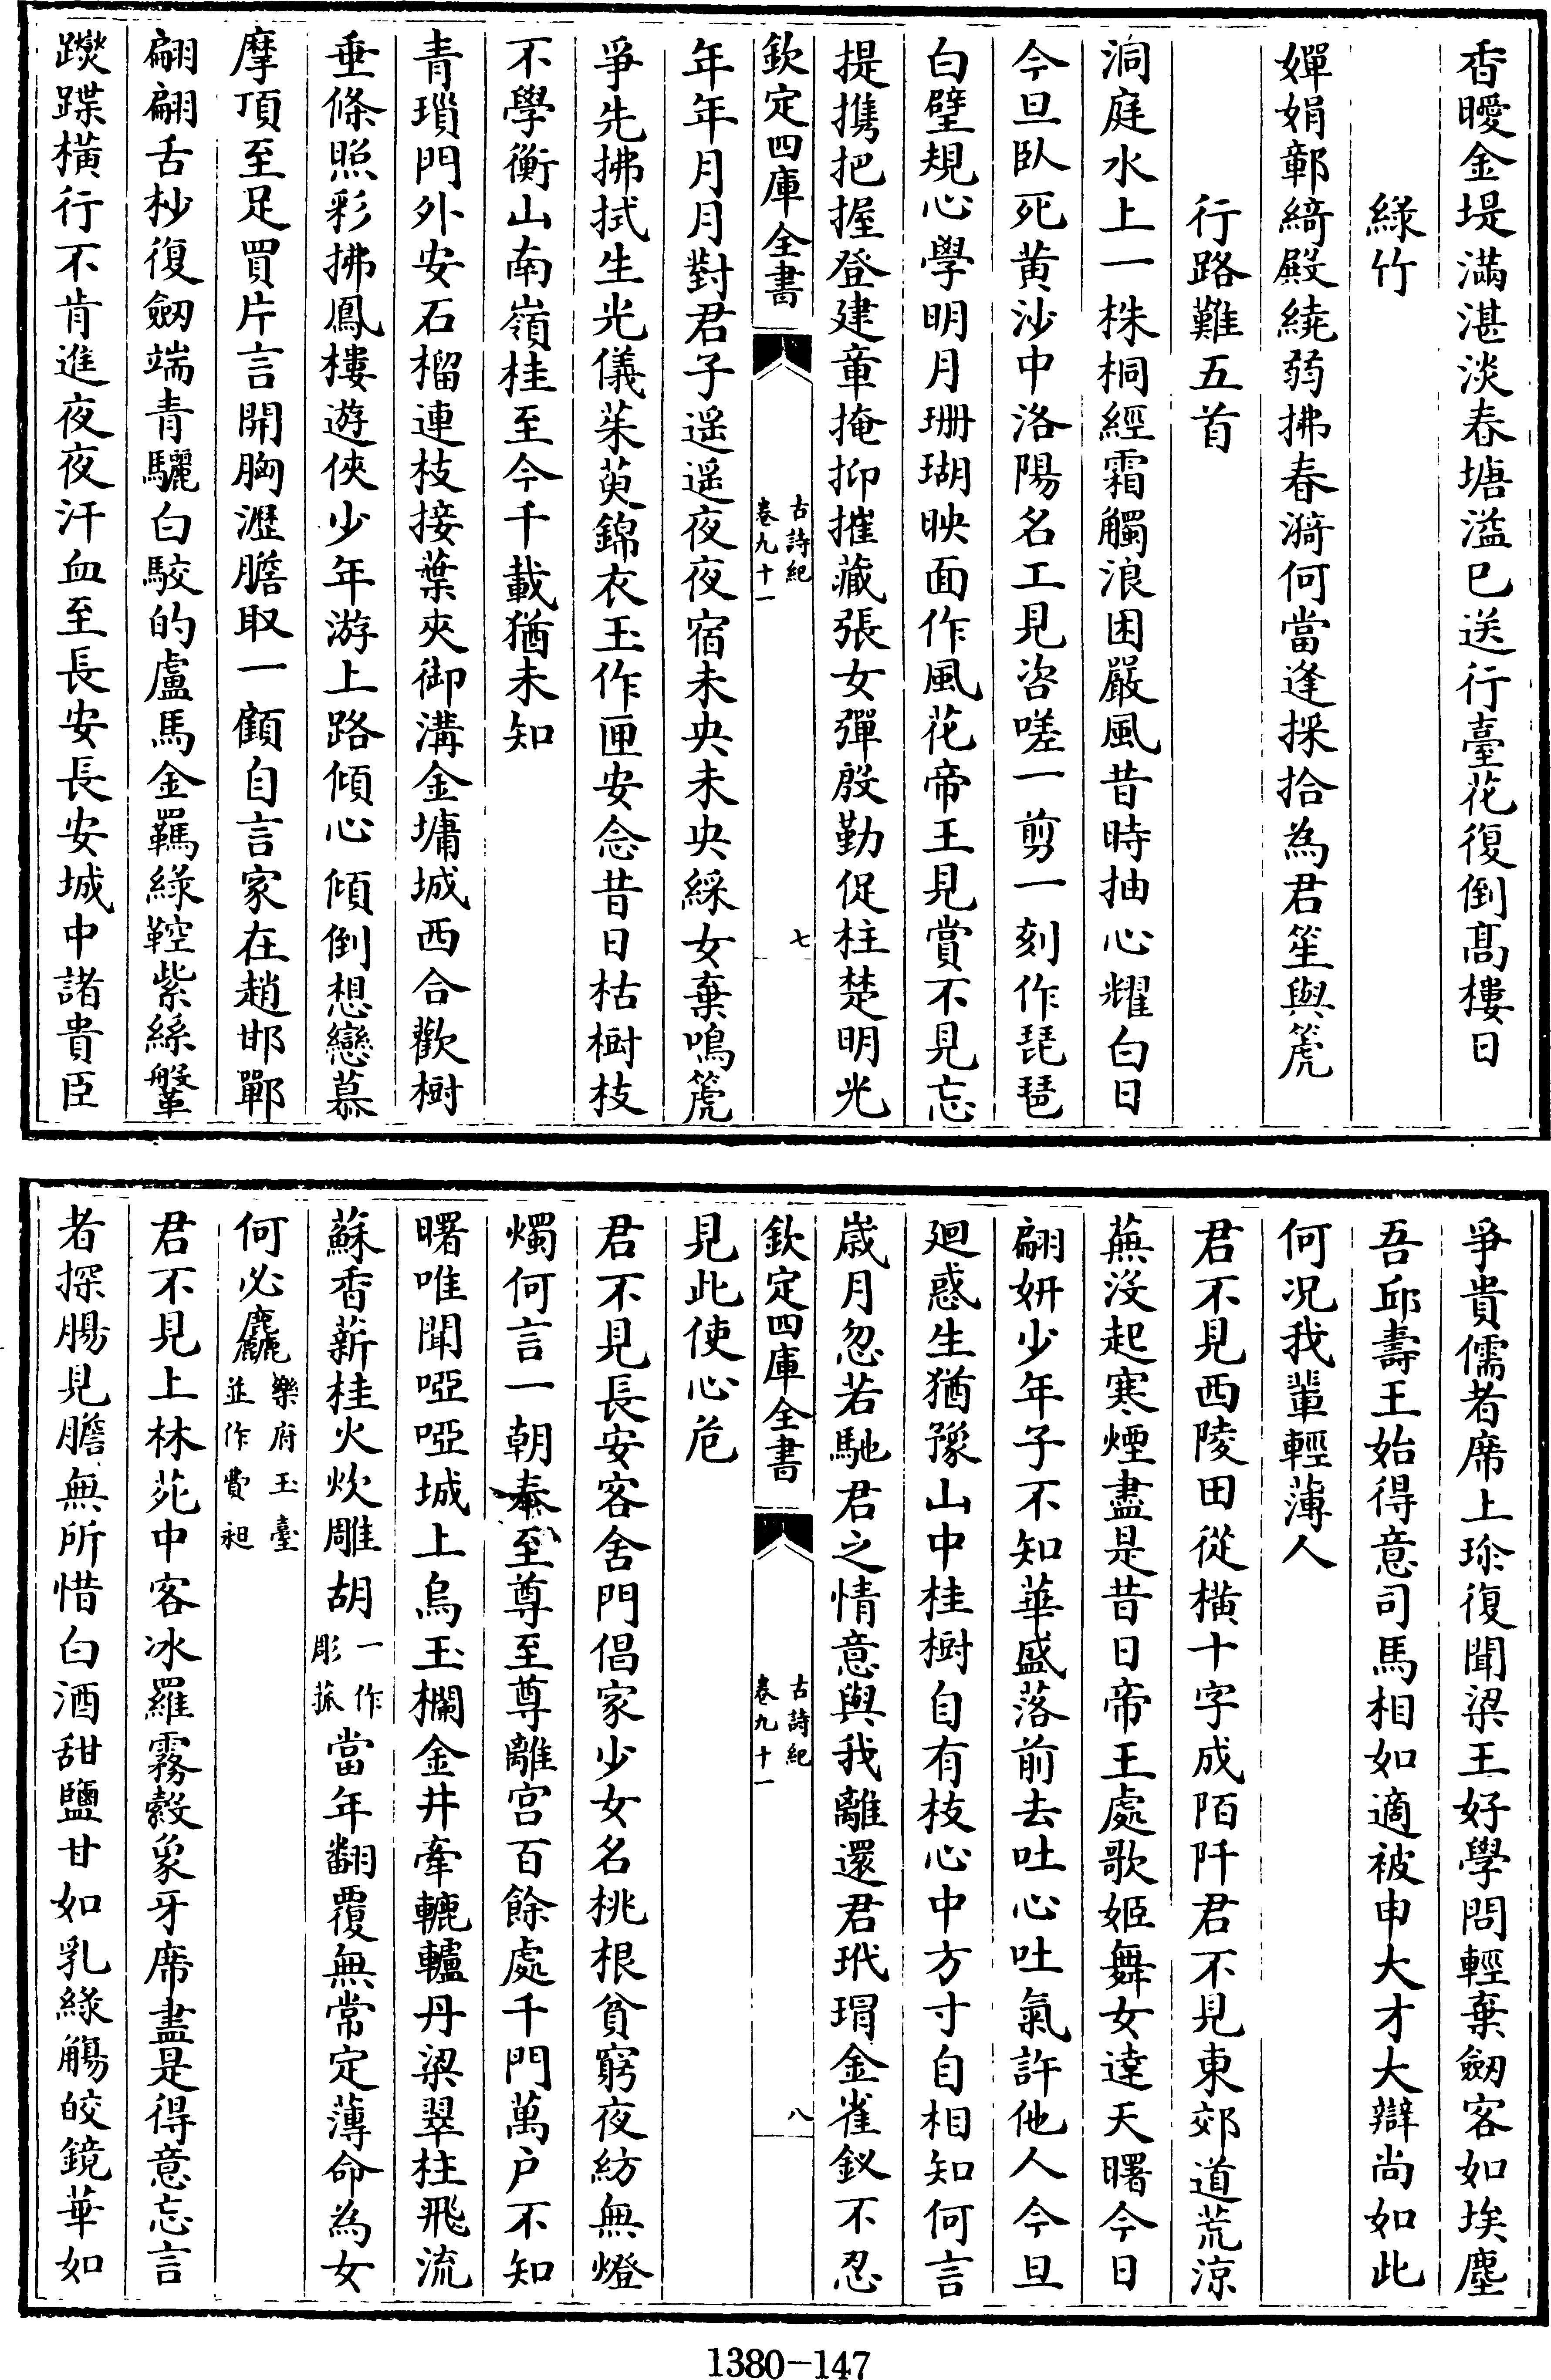 香曖金堤滿湛淡春塘溢已送行臺花復倒髙樓日
綠竹
嬋娟鄣綺殿繞弱拂春漪何當逢採拾為君笙與箎
行路難五首
洞庭水上一株桐經霜觸浪困嚴風昔時抽心耀白日
今旦臥死黄沙中洛陽名工見咨嗟一剪一刻作琵琶
白璧規心學明月珊瑚映面作風花帝王見賞不見忘
提攜把握登建章掩抑摧藏張女彈殷勤促柱楚明光
欽定四庫全書
古詩紀
卷九十一
七
年年月月對君子遥遥夜夜宿未央未央綵女棄鳴箎
爭先拂拭生光儀茱萸錦衣玉作匣安念昔日枯樹枝
不學衡山南嶺桂至今千載猶未知
青瑣門外安石榴連枝接葉夾御溝金墉城西合歡樹
垂條照彩拂鳳樓遊俠少年游上路傾心傾倒想戀慕
摩頂至足買片言開胸瀝膽取一顧自言家在趙邯鄲
翩翩舌杪復劒端青驪白駮的盧馬金羈緑鞚紫絲鞶
蹀躞橫行不肯進夜夜汗血至長安長安城中諸貴臣
爭貴儒者席上珍復聞梁王好學問輕棄劒客如埃塵
吾邱壽王始得意司馬相如適被申大才大辯尚如此
何况我輩輕薄人
君不見西陵田從橫十字成陌阡君不見東郊道荒涼
蕪沒起寒煙盡是昔日帝王處歌姬舞女達天曙今日
翩妍少年子不知華盛落前去吐心吐氣許他人今旦
廻惑生猶豫山中桂樹自有枝心中方寸自相知何言
歲月忽若馳君之情意與我離還君玳瑁金雀釵不忍
欽定四庫全書
古詩紀
卷九十一
八
見此使心危
君不見長安客舍門倡家少女名桃根貧窮夜紡無燈
燭何言一朝奉至尊至尊離宫百餘處千門萬户不知
曙唯聞啞啞城上烏玉欄金井牽轆轤丹梁翠柱飛流
蘇香薪桂火炊雕胡一作彫菰當年翻覆無常定薄命為女
何必麤樂府玉臺並作費昶
君不見上林苑中客冰羅霧縠象牙席盡是得意忘言
者探腸見膽無所惜白酒甜鹽甘如乳綠觴皎鏡華如
1380-147